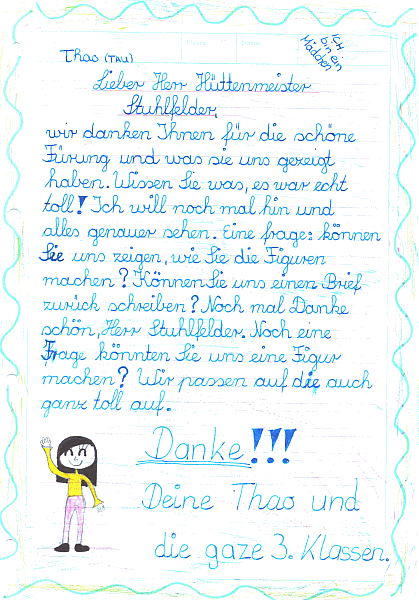 Thao (TAU)
ICH
bin ein
Mädchen
Lieber Herr Hüttenmeister
Stuhlfelder,
wir danken Ihnen für die schöne
Fürung und was sie uns gezeigt
haben. Wissen Sie was, es war echt
toll! Ich will noch mal hin und
alles genauer sehen. Eine frage: können
Sie uns zeigen, wie Sie die Figuren
machen? Können Sie uns einen Brief
zurück schreiben? Noch mal Danke
schön, Herr Stuhlfelder. Noch eine
Frage könnten Sie uns eine Figur
machen? Wir passen auf die auch
ganz toll auf.
Danke!!!
Deine Thao und
die gaze 3. Klassen.